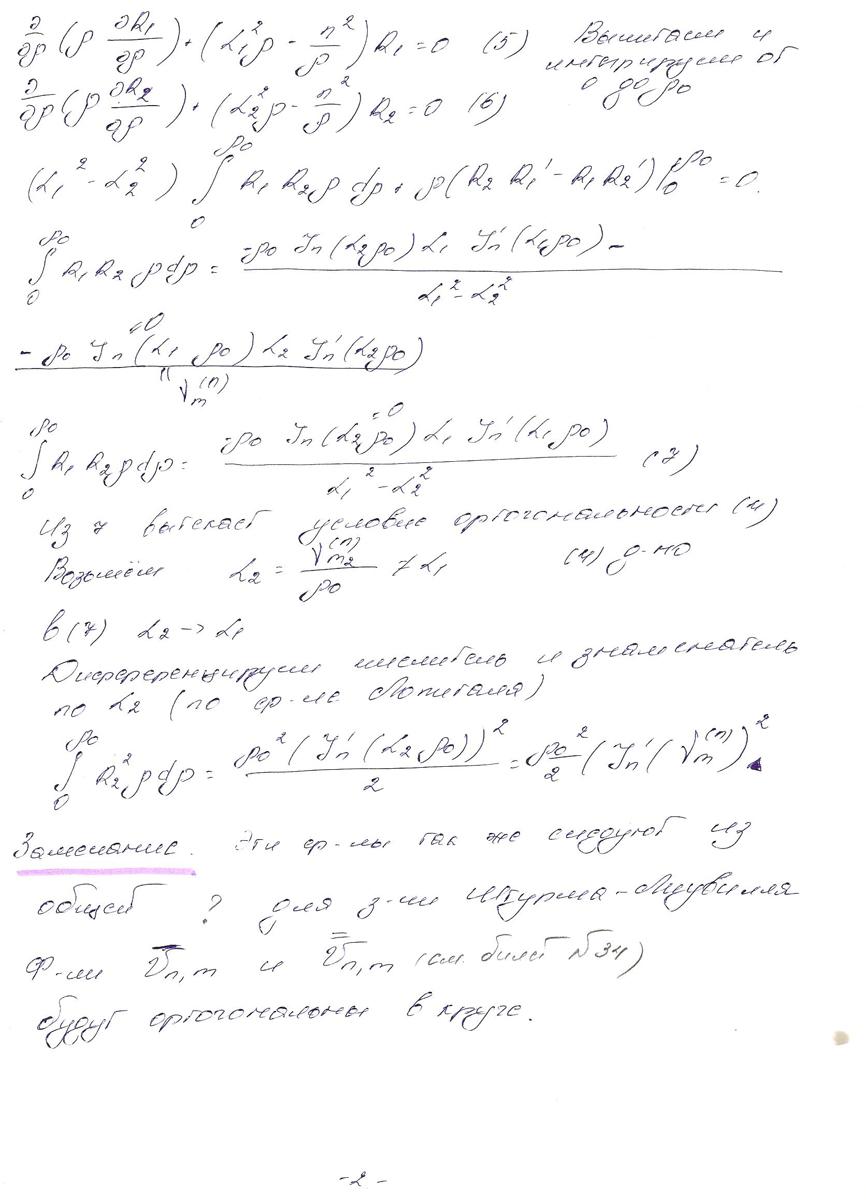 ∂/∂ρ (ρ ∂R₁/∂ρ) + (α₁²ρ - n²/ρ) R₁ = 0 (5) Вычитаем и
интегрируем от
0 до ρ₀
∂/∂ρ (ρ ∂R₂/∂ρ) + (α₂²ρ - n²/ρ) R₂ = 0 (6)
(α₁² - α₂²) ∫₀^ρ₀ R₁ R₂ ρ dρ + ρ(R₂ R₁' - R₁ R₂')|₀^ρ₀ = 0.
∫₀^ρ₀ R₁ R₂ ρ dρ = -ρ₀ Jn(α₂ρ₀) α₁ Jn'(α₁ρ₀) - / α₁² - α₂²
=0
- ρ₀ Jn(α₁ ρ₀) α₂ Jn'(α₂ρ₀)
" νm⁽ⁿ⁾
=0
∫₀^ρ₀ R₁ R₂ ρ dρ = -ρ₀ Jn(α₂ρ₀) α₁ Jn'(α₁ρ₀) / α₁² - α₂² (7)
Из 7 вытекает условие ортогональности (4)
Возьмём α₂ = νm₂⁽ⁿ⁾ / ρ₀ ≠ α₁ (4) д-но
в (7) α₂ → α₁
Дифференцируем числитель и знаменатель
по α₂ (по ф-ле Лопиталя)
∫₀^ρ₀ R₂² ρ dρ = ρ₀² (Jn'(α₂ρ₀))² / 2 = ρ₀²/2 (Jn'(νm⁽ⁿ⁾))²
Замечание. Эти ф-лы так же следуют из
общей ? для з-чи Штурма-Лиувилля
Ф-ии v̅n,m и v̿n,m (см. билет №34)
будут ортогональны в круге.
-2-